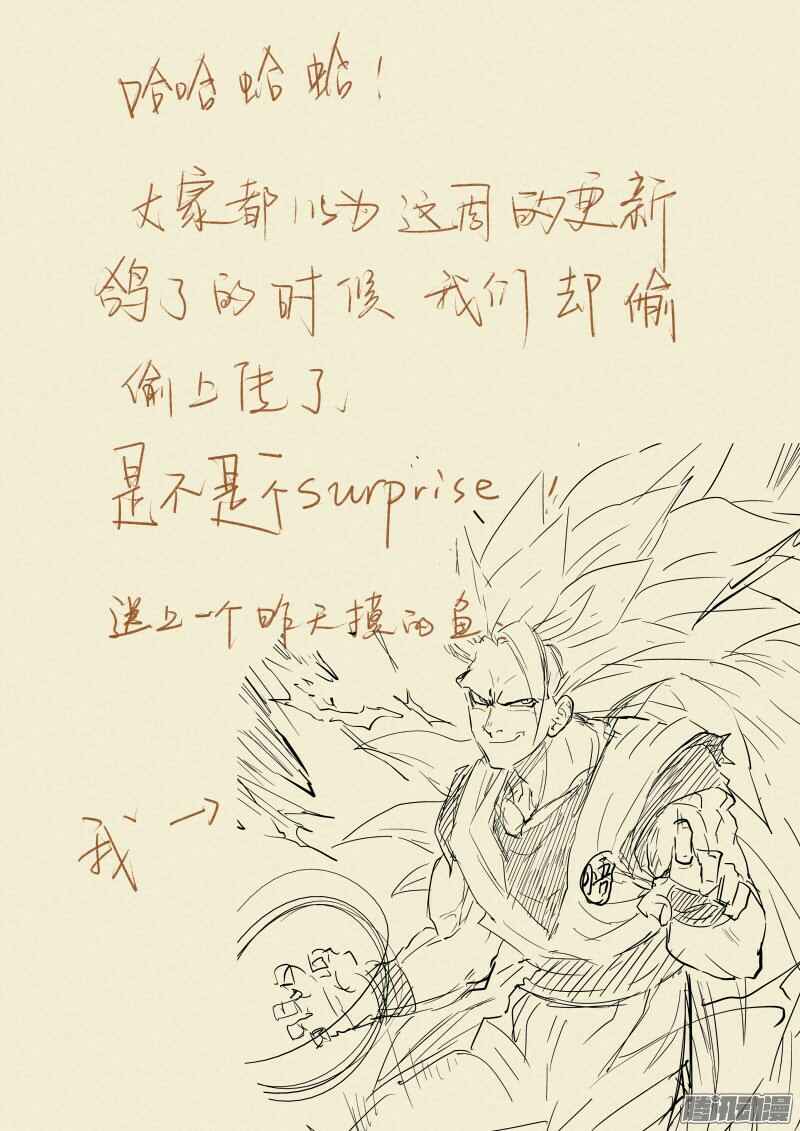 哈哈蛤蛤!
大家都以为这周的更新
鸽了的时候 我们却偷
偷上传了
是不是个surprise!
送上一个昨天摸的鱼
我→
悟
腾讯动漫